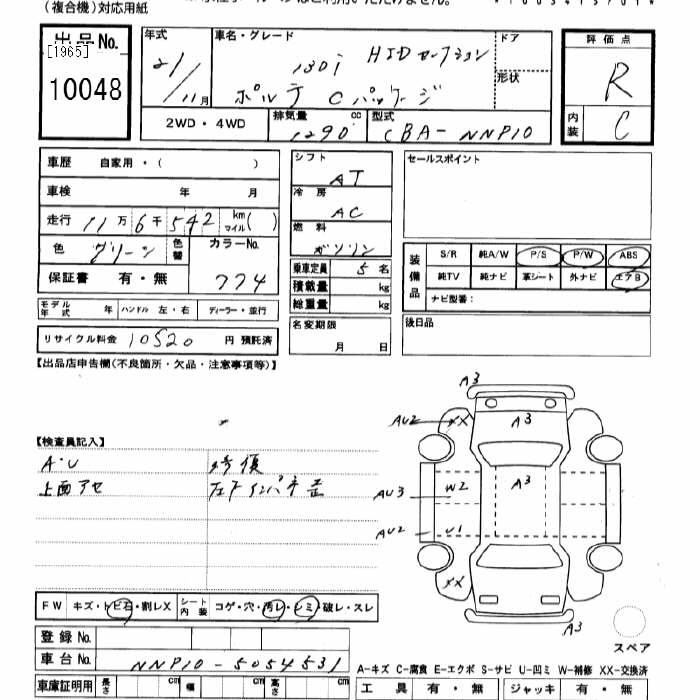 (複合機)対応用紙
出品No.
[1965]
10048
年式 21/11月
車名・グレード 130i HIDセレクション
ポルテ Cパッケージ
ドア
形状
評価点
R
内装 C
2WD・4WD
排気量 1290 cc
型式 CBA-NNP10
車歴 自家用・( )
車検 年 月
走行 11万6千542 km マイル( )
色 グリーン 色替 カラーNo. 774
保証書 有・無
モデル年式 年 ハンドル 左・右 ディーラー・並行
リサイクル料金 10520 円 預託済
シフト AT
冷房 AC
燃料 ガソリン
乗車定員 5名
積載量 kg
総重量 kg
名変期限 月 日
セールスポイント
装備品
S/R 純A/W P/S P/W ABS
純TV 純ナビ 革シート 外ナビ エアB
ナビ型番:
後日品
【出品店申告欄(不良箇所・欠品・注意事項等)】
【検査員記入】
A・U
上面アセ
修復
左Fインパネ差
A3
AU2 XX A3
A3
AU3 W2
AU2 U1
XX
A3
スペア
FW キズ・トビ石・割レX シート内装 コゲ・穴・汚レ・シミ・破レ・スレ
登録No.
車台No. NNP10-5054531
車庫証明用 長さ cm 幅 cm 高さ cm
A-キズ C-腐食 E-エクボ S-サビ U-凹ミ W-補修 XX-交換済
工具 有・無 ジャッキ 有・無